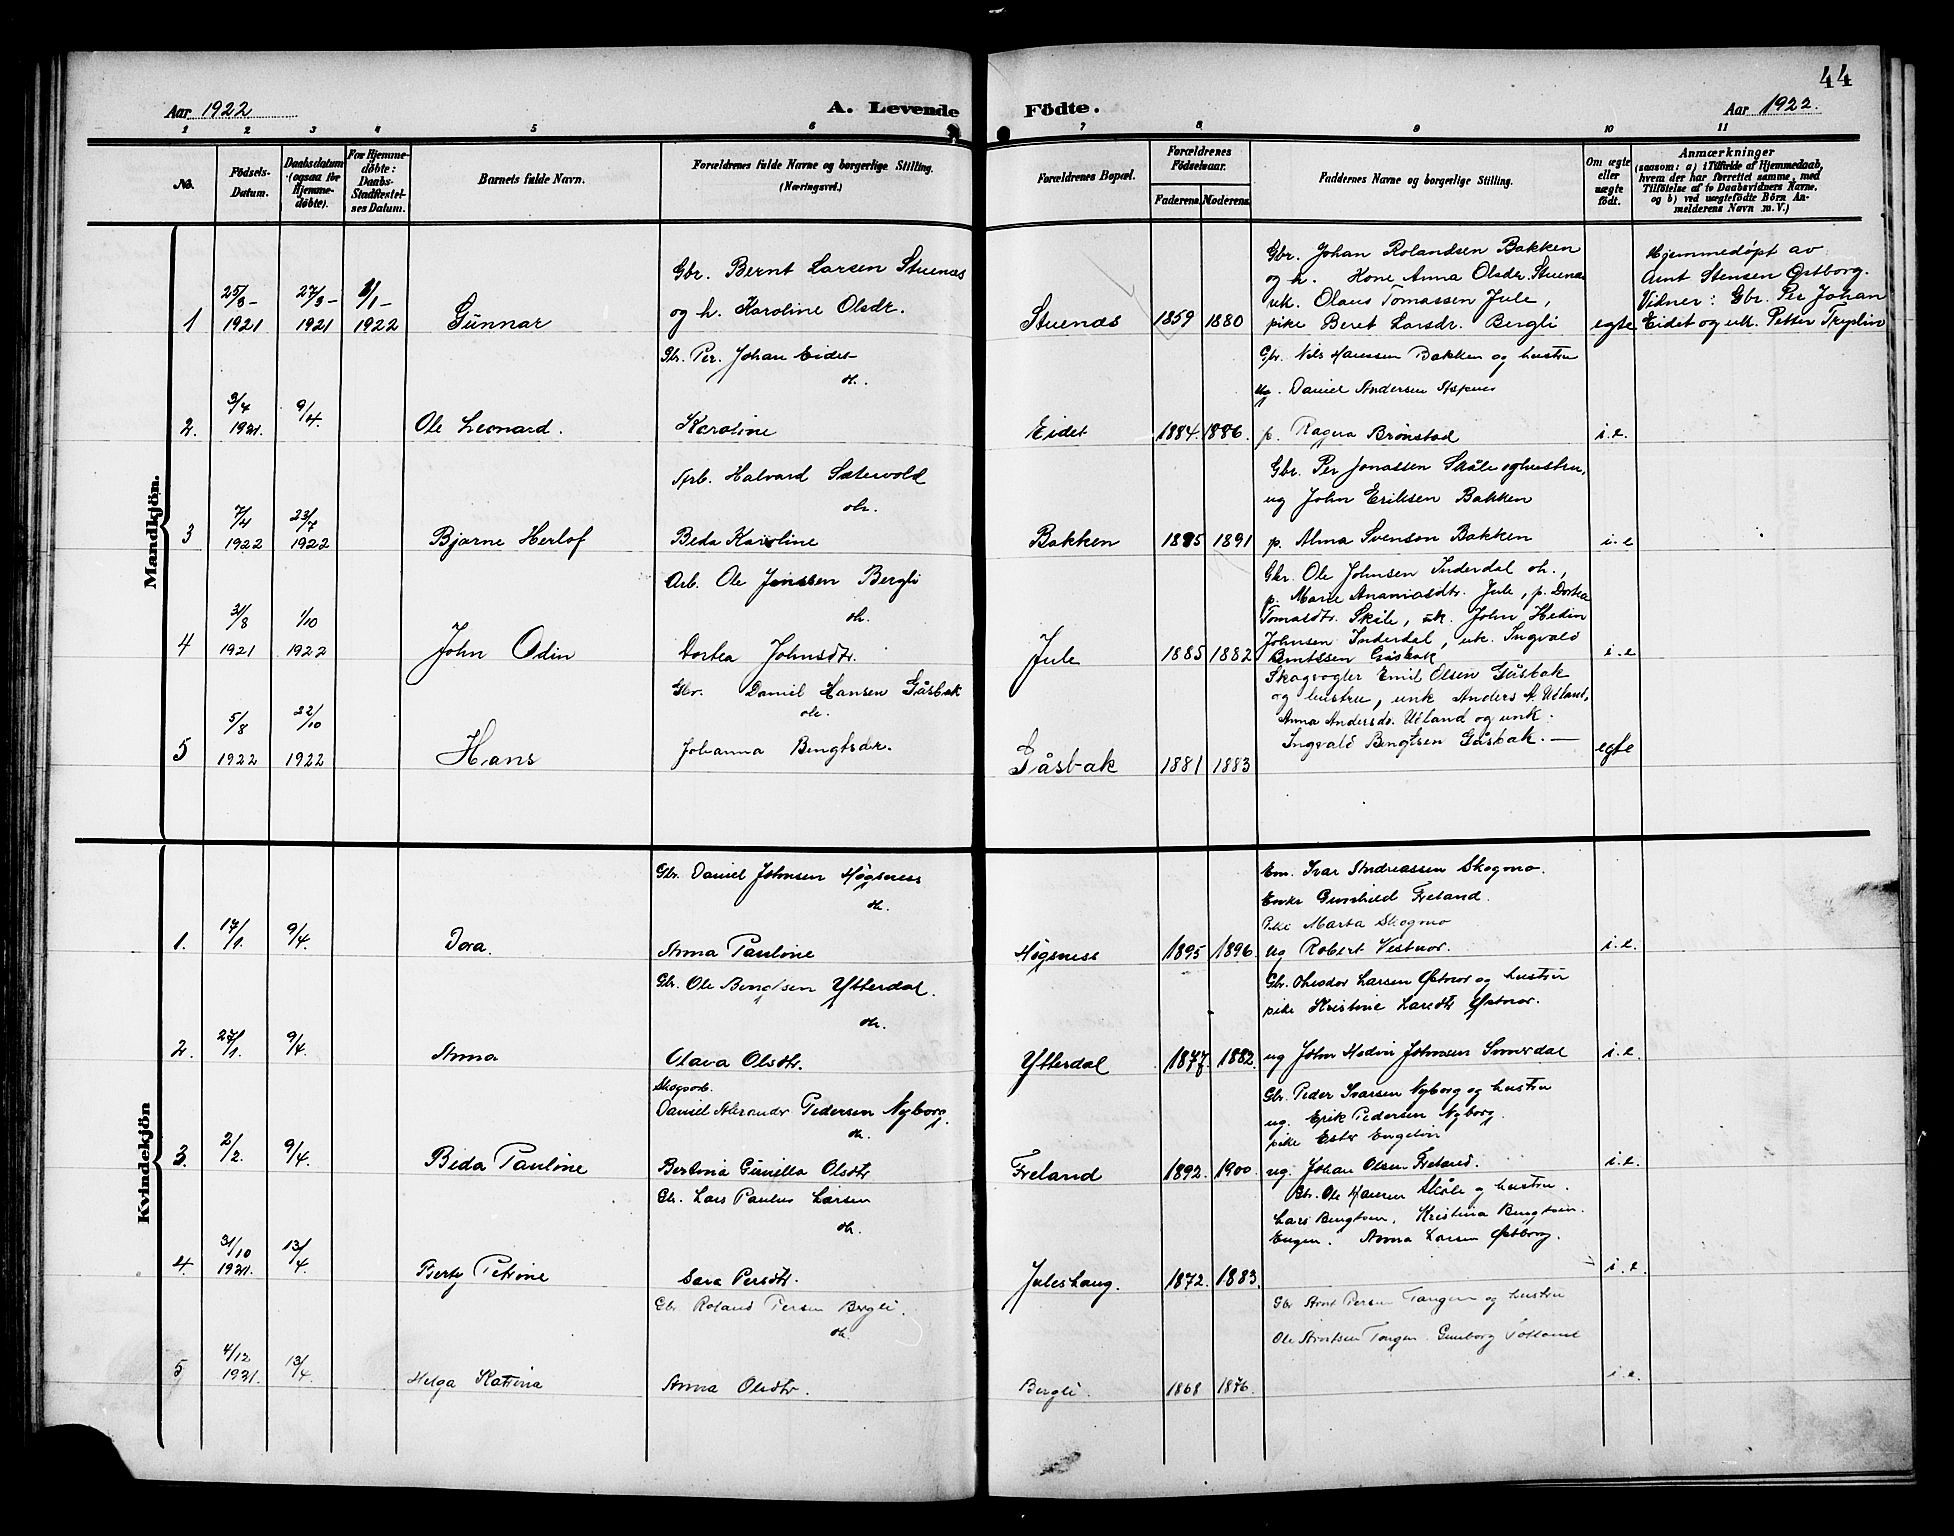 44
Aar 1922
A. Levende
Födte.
Aar 1922.
1 2 3 4 5 6 7 8 9 10 11
No.
Födsels-Datum.
Daabsdatum (ogsaa for Hjemme-døbte).
For Hjemme-døbte: Daabs-Stadfæstel-ses Datum.
Barnets fulde Navn.
Forældrenes fulde Navne og borgerlige Stilling. (Næringsvei.)
Forældrenes Bopæl.
Forældrenes Födselsaar.
Faderens. Moderens.
Faddernes Navne og borgerlige Stilling.
Om ægte eller uægte födt.
Anmærkninger
(saasom: a) i Tilfælde af Hjemmedaab, hvem der har forrettet samme, med Tilföielse af to Daabsvidners Navne, og b) ved uægtefødte Börn An-melderens Navn m. V.)
Mandkjön.
1
25/3 - 1921
27/3 - 1921
1/1 - 1922
Gunnar
Gbr. Bernt Larsen Stuenæs
og h. Karoline Olsdr.
Stuenæs
1859 1880
Gbr. Johan Rolandsen Bakken
og h. Kone Anna Olsdr. Stuenæs
uk. Olaus Tomassen Jule,
pike Beret Larsdr. Bergli
egte
Hjemmedøpt av
Arnt Stensen Østborg.
Vidner: Gbr. Per Johan
Eidet og uk. Petter Tryslin
2.
3/4 1921.
9/4.
Ole Leonard.
Gbr. Per Johan Eidet
oh.
Karoline
Eidet
1884. 1886.
Gbr. Nils Hanssen Bakken og hustru
ug. Daniel Andersen Aspnes
p. Ragna Brønstad
i.e.
3
7/4 1922
23/7 1922
Bjarne Herlof
Arb. Halvard Sætervold
oh.
Beda Karoline
Bakken
1895 1891
Gbr. Per Jonassen Skåle og hustru,
ug John Eriksen Bakken
p. Alma Svenson Bakken
i.e
4
31/8 1921
1/10 1922
John Odin
Arb. Ole Jenssen Bergli
oh.
Dortea Johnsdtr.
Jule
1885 1882
Gbr. Ole Johnsen Inderdal oh.,
p. Marie Ananiasdtr. Jule, p. Dortea
Tomasdtr. Skåle, uk. John Hedin
Johnsen Inderdal, uk. Ingvald
Berntssen Gåsbak
i.e
5
5/8 1922
22/10 1922
Hans
Gbr. Daniel Hansen Gåsbak
oh.
Johanna Bengtsdr.
Gåsbak
1881 1883
Skogvogter Emil Olsen Gåsbak
og hustru, unk Anders A. Udland,
Anna Andersdr. Udland og unk.
Ingvald Bengtsen Gåsbak. —
egte
Kvindekjön
1.
17/1.
9/4.
Dora.
Gbr. Daniel Johnsen Høgsness
oh.
Anna Pauline
Høgsness
1895 1896.
Em. Ivar Andreassen Skogmo.
Enke Gunhild Freland.
Pike Marta Skogmo
ug Robert Vestnor.
i.e.
2.
27/1.
9/4.
Anna
Gbr. Ole Bengtsen Ytterdal.
oh.
Olava Olsdtr.
Ytterdal
1877. 1882.
Gbr. Theodor Larsen Østnor og hustru
pike Kristine Larsdtr Østnor.
ug John Hedin Johnsen Innerdal
i.e.
3.
2/2.
9/4.
Beda Pauline
Skogsarb.
Daniel Alexander Pedersen Nyborg.
oh.
Bertina Gunilla Olsdtr
Freland
1892. 1900.
Gbr. Peder Ivarsen Nyborg og hustru
ug. Erik Pedersen Nyborg.
pike Ester Engelin
ug. Johan Olsen Freland.
i.e.
4.
31/10 1921.
13/4.
Berty Petrine
Gbr. Lars Paulus Larsen
oh.
Sara Persdtr.
Juleshaug.
1872. 1883.
Gbr. Ole Hansen Skåle og hustru.
Lars Bengtsen, Kristina Bengtsen.
Engen. Anna Larsen Østborg.
i.e.
5
4/12 1921.
13/4.
Helga Katrina
Gbr Roland Persen Bergli.
oh.
Anna Olsdtr.
Bergli.
1868 1876.
Gbr Arnt Persen Tangen og hustru
Ole Arntsen Tangen. Gunborg Totland
i.e.